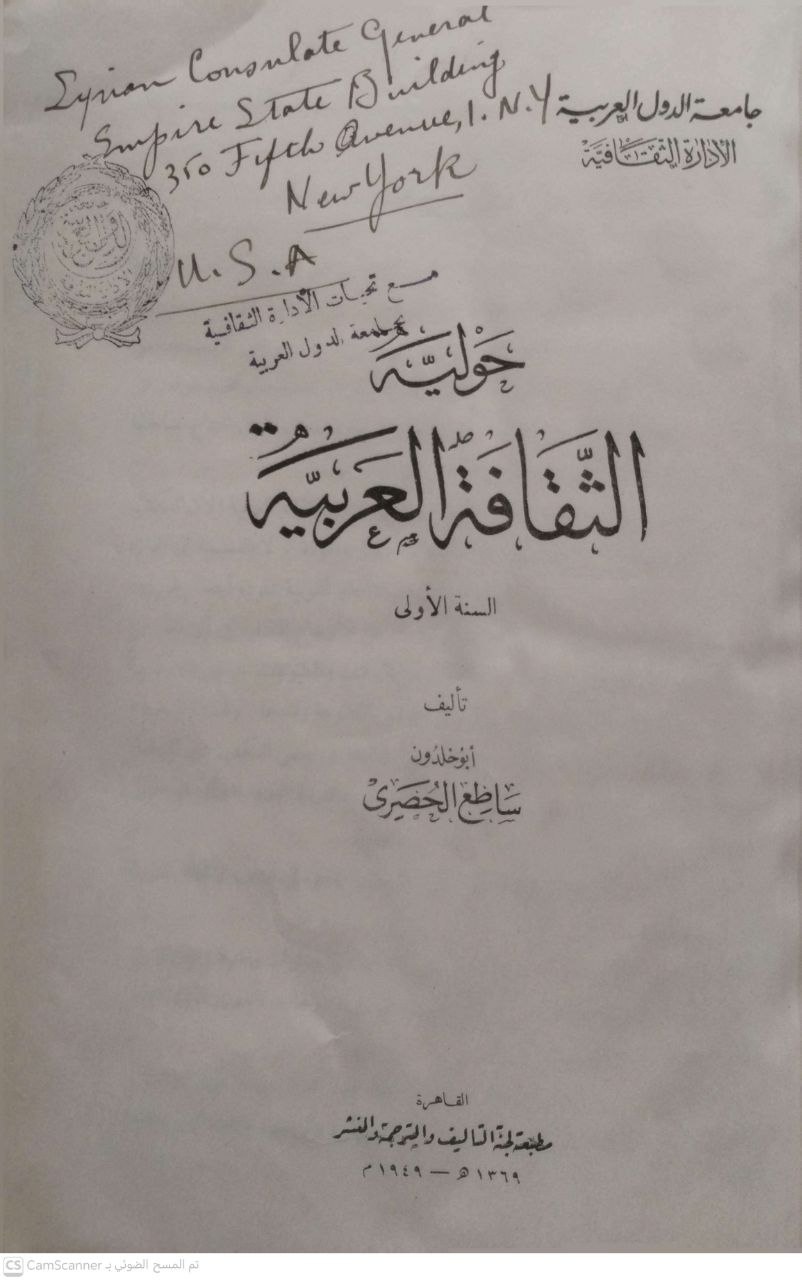 Syrian Consulate General
Empire State Building
350 Fifth Avenue, 1. N.Y
New York
U.S.A
جامعة الدول العربية
الإدارة الثقافية
مع تحيات الأدارة الثقافية
بجامعة الدول العربية
حَوْليَّة
الثَّقَافَةُ العَرَبيَّة
السنة الأولى
تأليف
أبو خلدون
سَاطِع الحُصَرِى
القاهرة
مطبعة لجنة التأليف والترجمة والنشر
١٣٦٩ ه — ١٩٤٩ م
CS CamScanner تم المسح الضوئي بـ